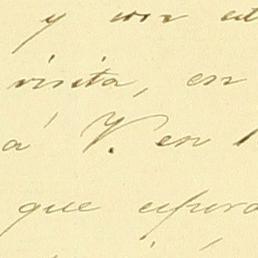 y con
visita, en
á V. en
que espera